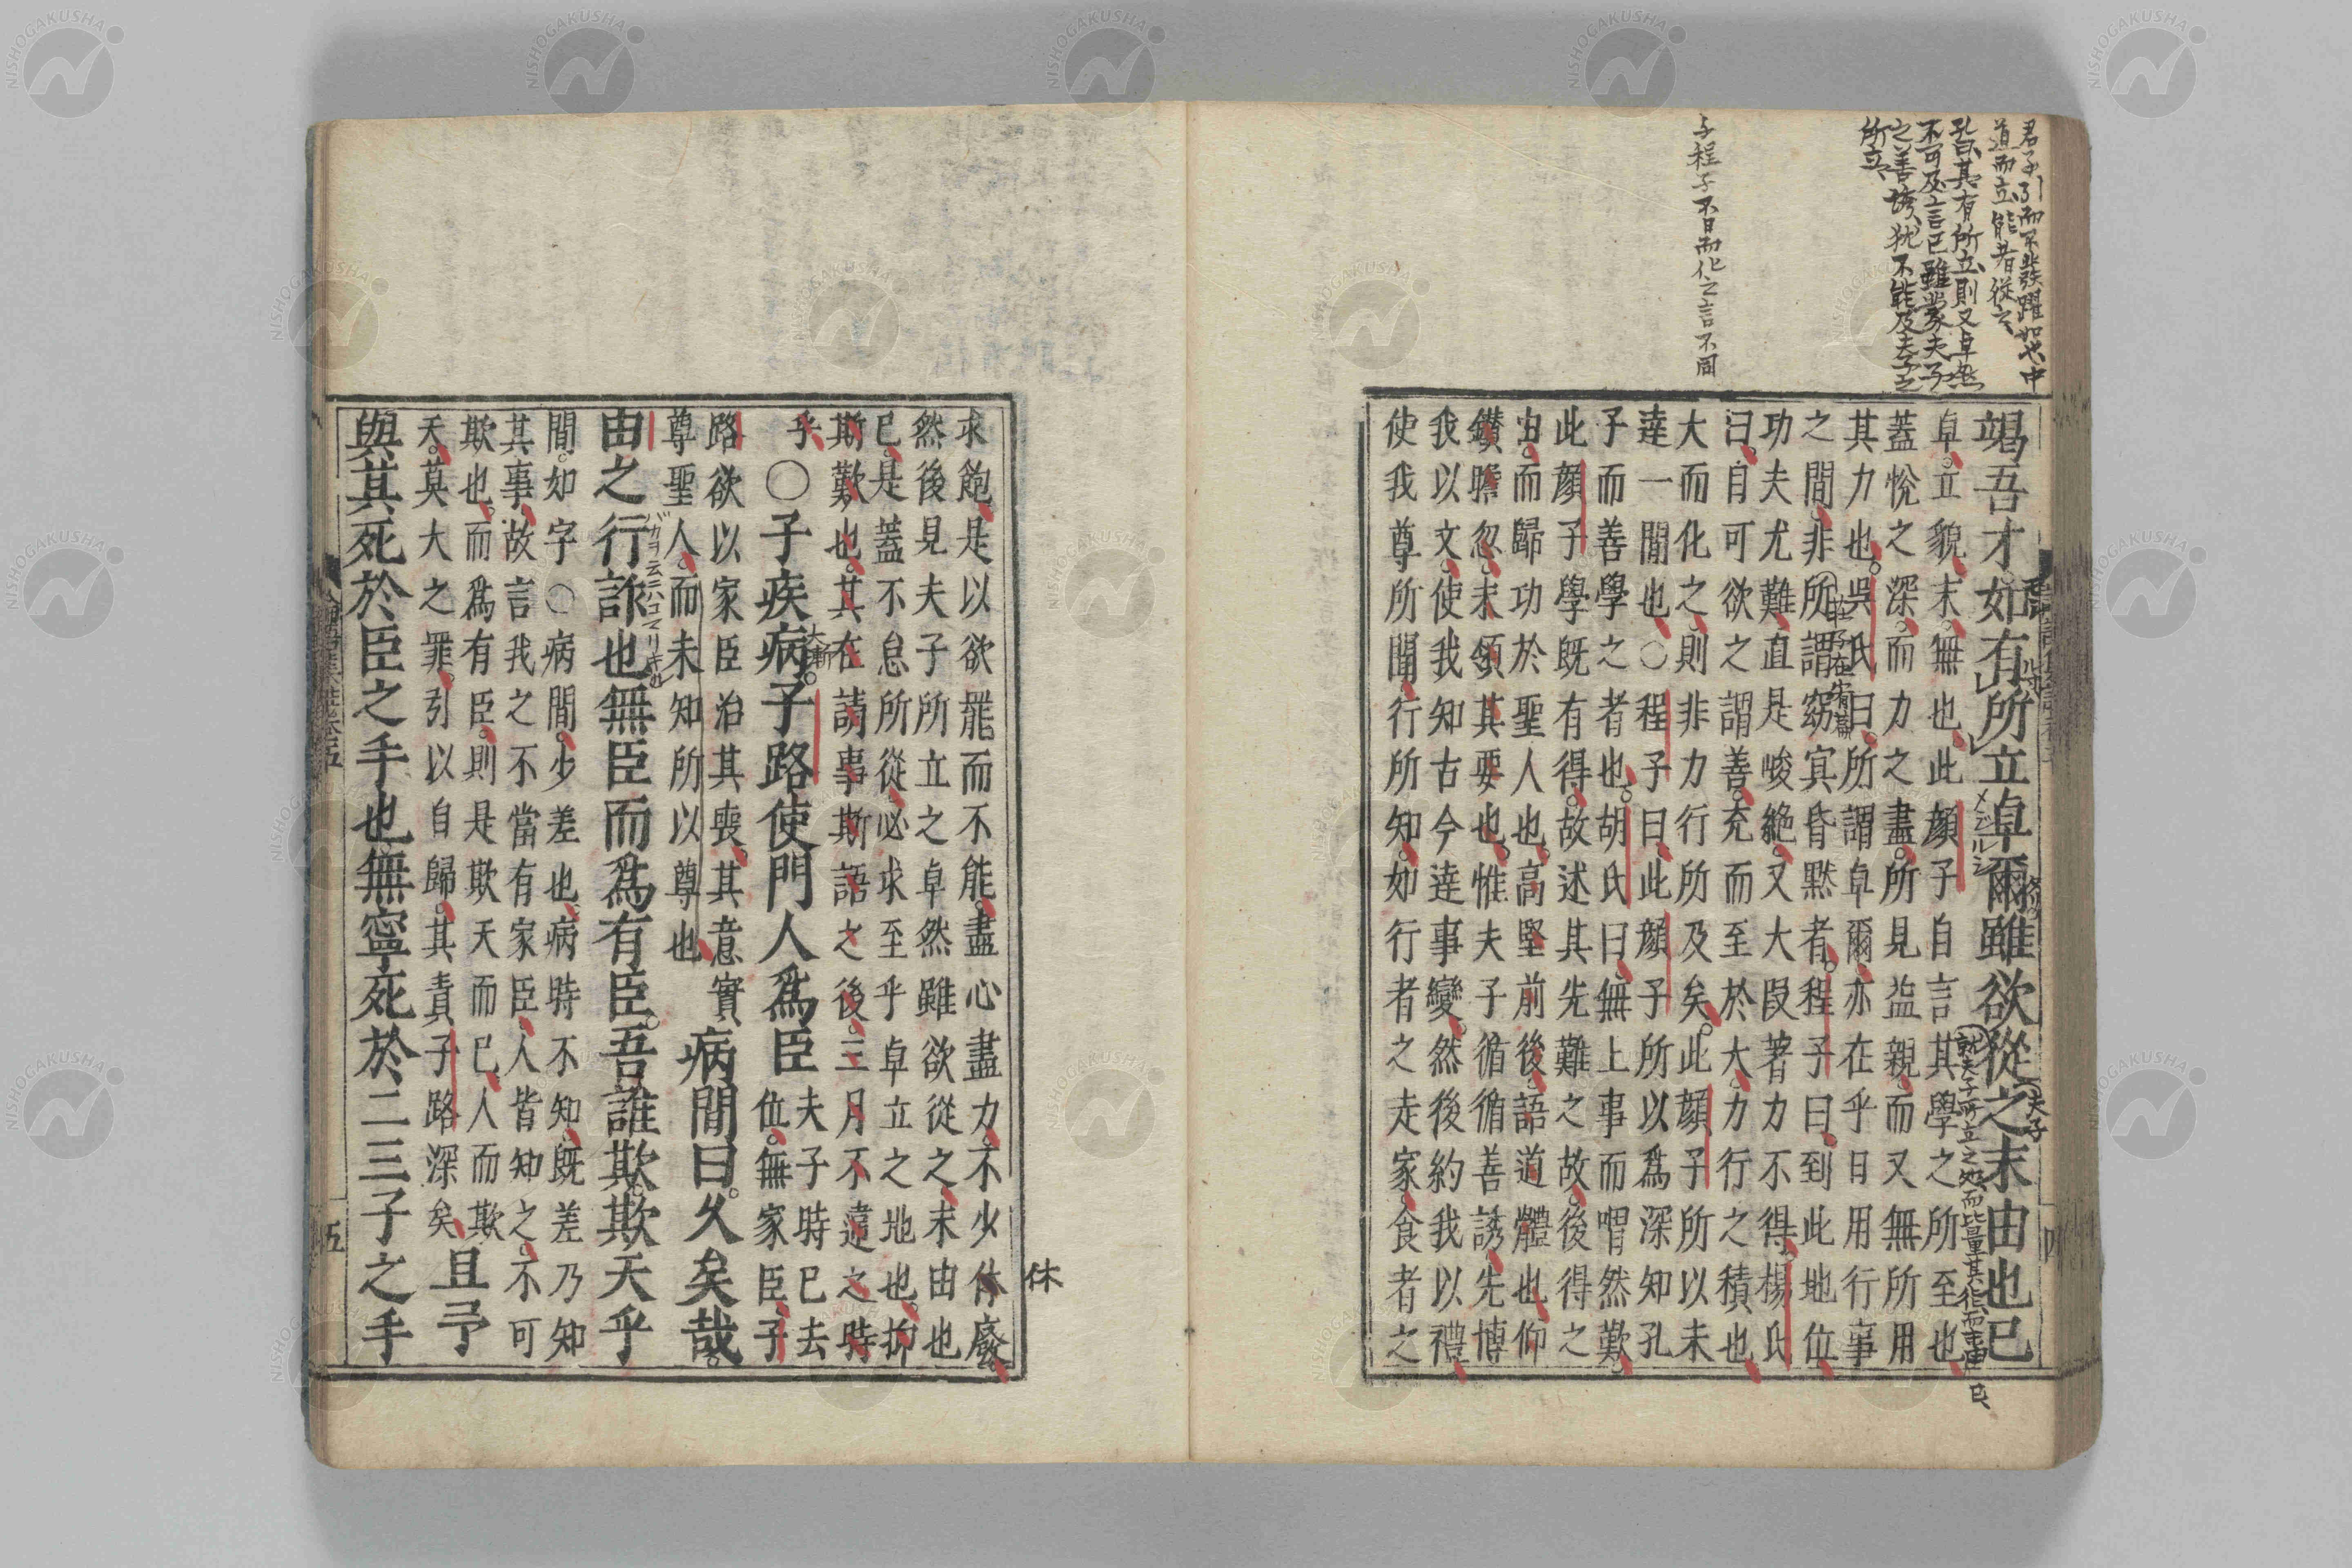 君子引而不發躍如也中
道而立能者從之
孔曰其有所立則又卓然
不可及言已雖蒙夫子
之善誘猶不能及夫子之
所立
子程子不曰而化之言不同
竭吾才如有所立卓爾雖欲從之末由也已
卓立貌末無也此顏子自言其學之所至也
蓋悅之深而力之盡所見益親而又無所用
其力也吳氏曰所謂卓爾亦在乎日用行事
之間非所謂窈冥昏默者程子曰到此地位
功夫尤難直是峻絕又大段著力不得楊氏
曰自可欲之謂善充而至於大力行之積也
大而化之則非力行所及矣此顏子所以未
達一間也○程子曰此顏子所以爲深知孔
子而善學之者也胡氏曰無上事而喟然歎
此顏子學既有得故述其先難之故後得之
由而歸功於聖人也高堅前後語道體也仰
鑽瞻忽未領其要也惟夫子循循善誘先博
我以文使我知古今達事變然後約我以禮
使我尊所聞行所知如行者之走家食者之
求飽是以欲罷而不能盡心盡力不少休廢
然後見夫子所立之卓然雖欲從之末由也
已是蓋不怠所從必求至乎卓立之地也抑
斯歎也其在請事斯語之後三月不違之時
乎○子疾病子路使門人爲臣
夫子時已去
位無家臣子
路欲以家臣治其喪其意實
尊聖人而未知所以尊也
病間曰久矣哉
由之行詐也無臣而爲有臣吾誰欺欺天乎
間如字○病間少差也病時不知既差乃知
其事故言我之不當有家臣人皆知之不可
欺也而爲有臣則是欺天而已人而欺
天莫大之罪引以自歸其責子路深矣
且予
與其死於臣之手也無寧死於二三子之手
四
五
休
夫子
大漸